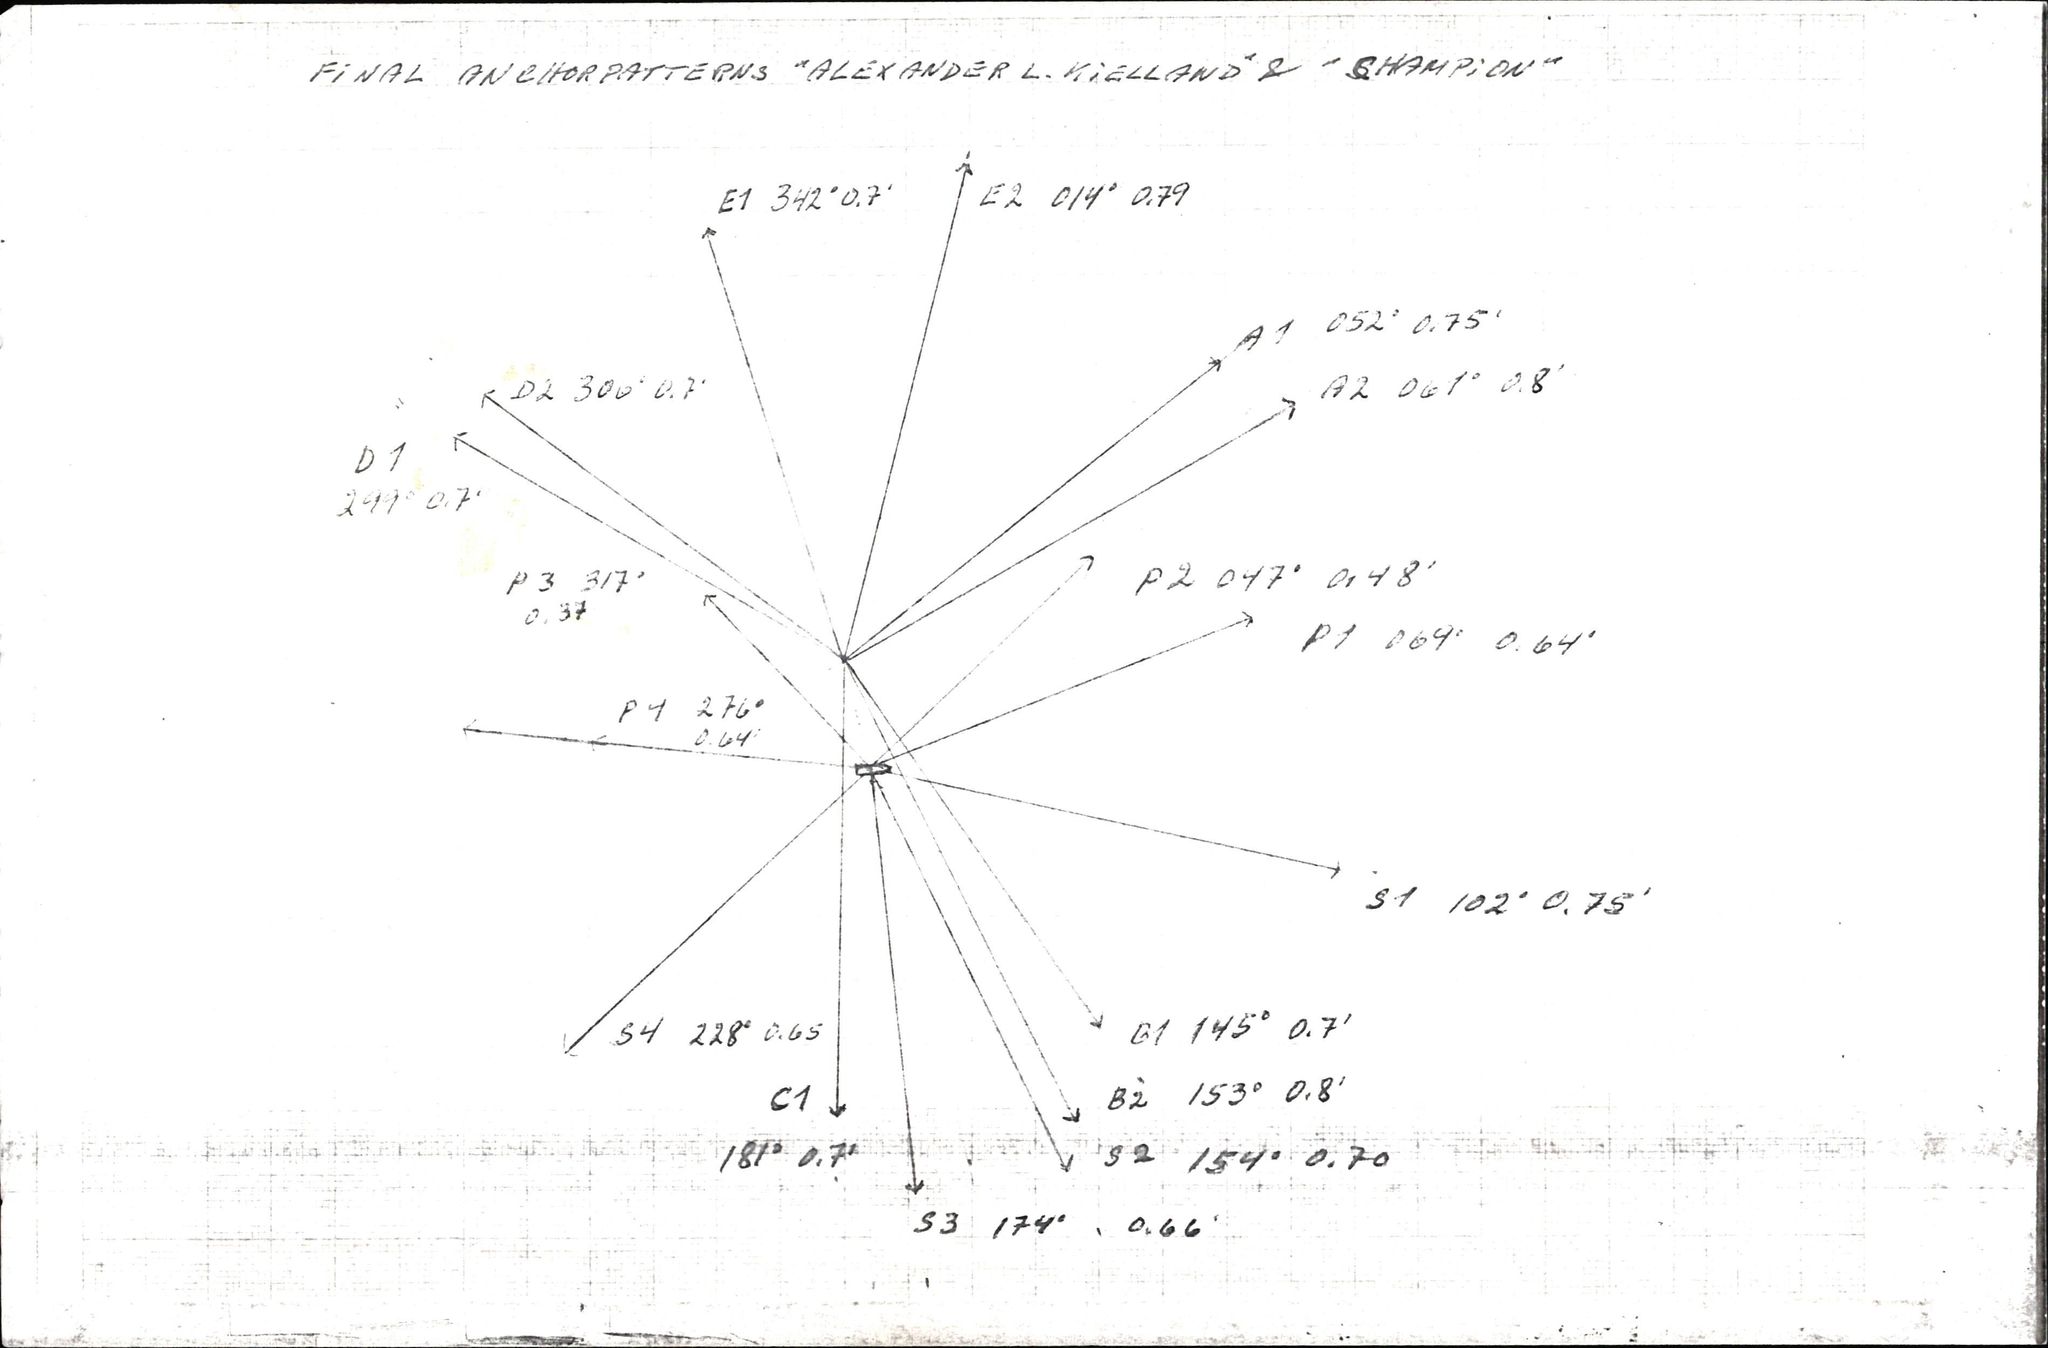 FINAL ANCHORPATTERNS "ALEXANDER L. KIELLAND" & "CHAMPION"
E1 342° 0.7'
E2 014° 0.79
A1 052° 0.75'
A2 061° 0.8'
D2 306° 0.7'
D1
299° 0.7'
P3 317°
0.37
P2 047° 0.48'
P1 069° 0.64'
P4 276°
0.64'
S1 102° 0.75'
S4 228° 0.65
B1 145° 0.7'
C1
181° 0.7'
B2 153° 0.8'
S2 154° 0.70
S3 174° 0.66'